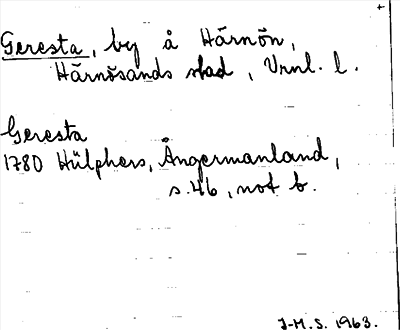 Geresta, by å Härnön,
Härnösands stad, Vrnl. l.
Geresta
1780 Hülphers, Ångermanland,
s.46, not b.
J-M.S. 1963.